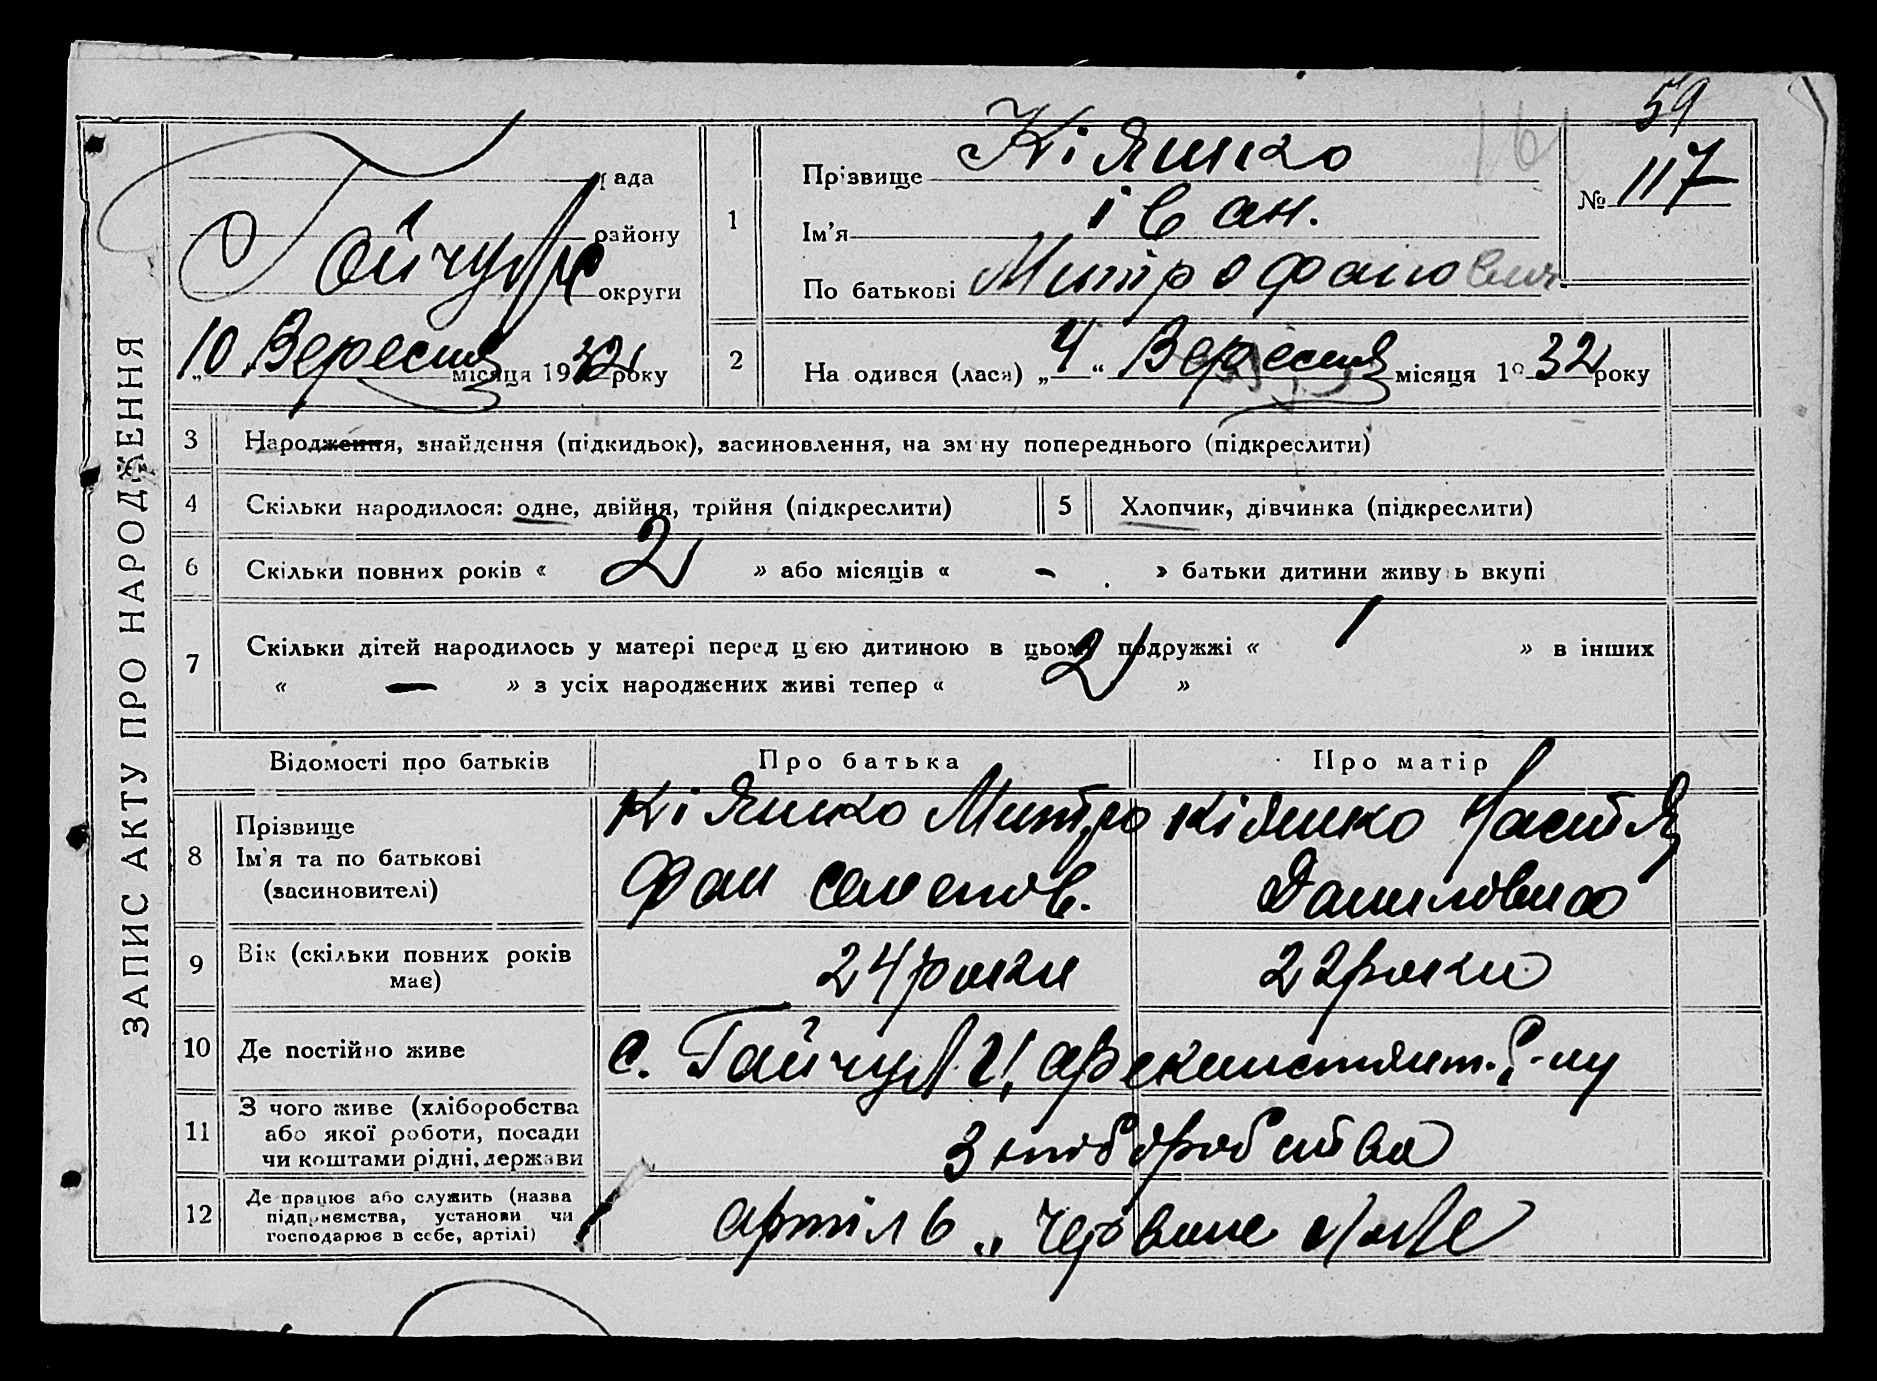 59
ЗАПИС АКТУ ПРО НАРОДЖЕННЯ
рада
району
Гайчул
округи
10 Вересня місяця 1932 року
1
Прізвище Кіяшко
Ім'я Іван.
По батькові Митрофанович
№ 117
2
На одився (лася) „4“ Вересня місяця 19 32 року
3 Народження, знайдення (підкидьок), засиновлення, на зміну попереднього (підкреслити)
4 Скільки народилося: одне, двійня, трійня (підкреслити)
5 Хлопчик, дівчинка (підкреслити)
6 Скільки повних років « 2 » або місяців « - » батьки дитини живуть вкупі
7 Скільки дітей народилось у матері перед цією дитиною в цьому подружжі « 1 » в інших
« — » з усіх народжених живі тепер « 2 »
Відомості про батьків Про батька Про матір
8 Прізвище
Ім'я та по батькові
(засиновителі)
Кіяшко Митро
фан Семенов.
Кіяшко Настя
Даниловна
9 Вік (скільки повних років
має)
24 роки
22 роки
10 Де постійно живе
с. Гайчул
р-ну
11 З чого живе (хліборобства
або якої роботи, посади
чи коштами рідні, держави
З хліборобства
12 Де працює або служить (назва
підприємства, установи чи
господарює в себе, артілі)
артіль „Червоне поле